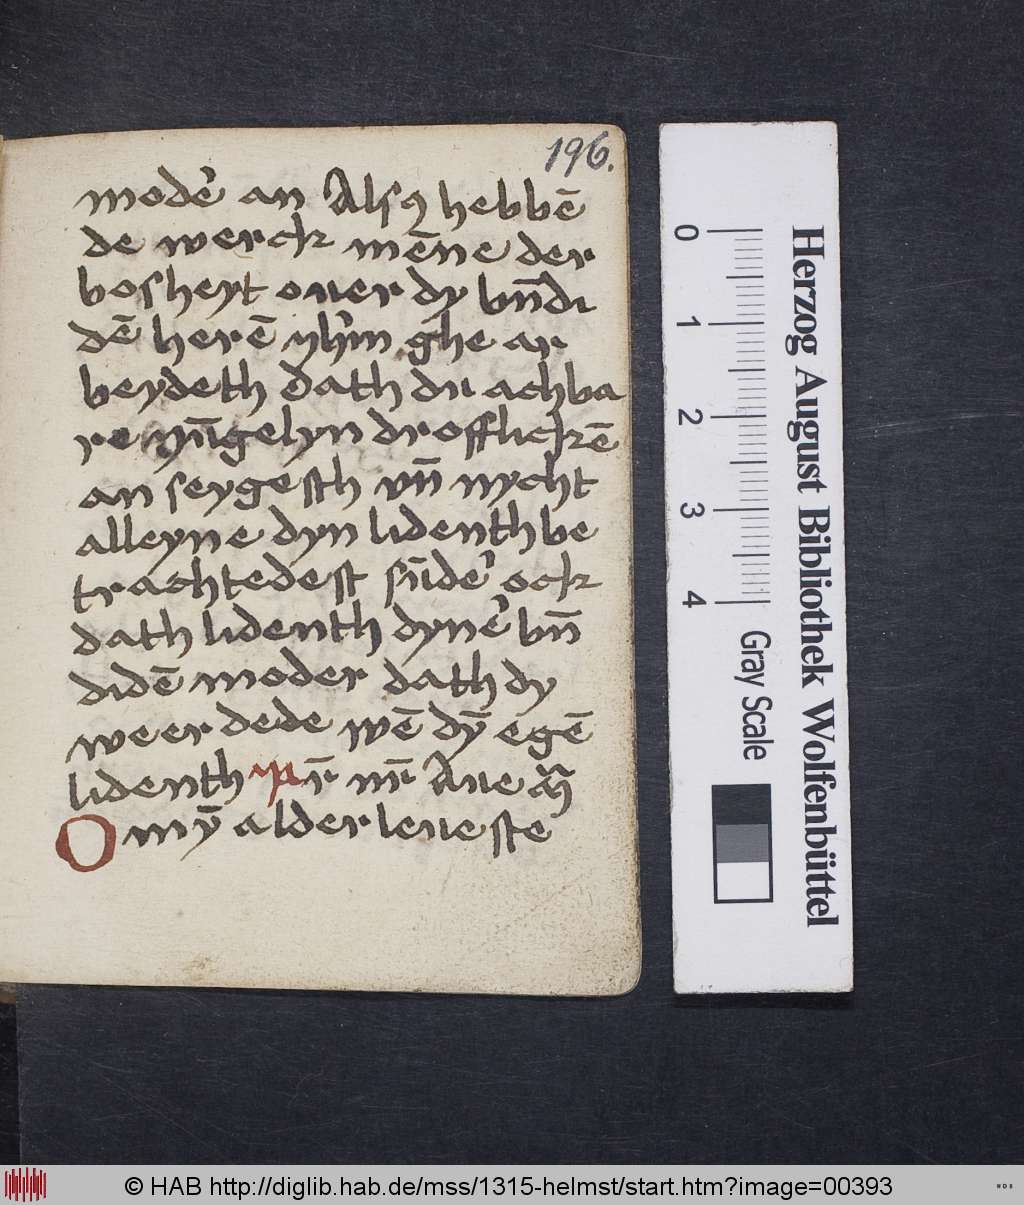 196.
moder̉ an Alſꝯ hebbē
de werck mēne der
boſheyt ouer dy bn̄di
dē herē yhm̉ ghe ar
beydeth dath du achba
re yn̄gelyn drofflickē
an ſeygeſth vn̄ nycht
alleyne dyn lidenth be
trachtedeſt ſn̄der̉ ock
dath lidenth dyner̉ bn̄
didē moder dath dy
weer dede wē dȳ egē
lidenth pr̄ nr̄ Aue ma
O mȳ alder leueſte
Herzog August Bibliothek Wolfenbüttel
0 1 2 3 4
Gray Scale
© HAB http://diglib.hab.de/mss/1315-helmst/start.htm?image=00393